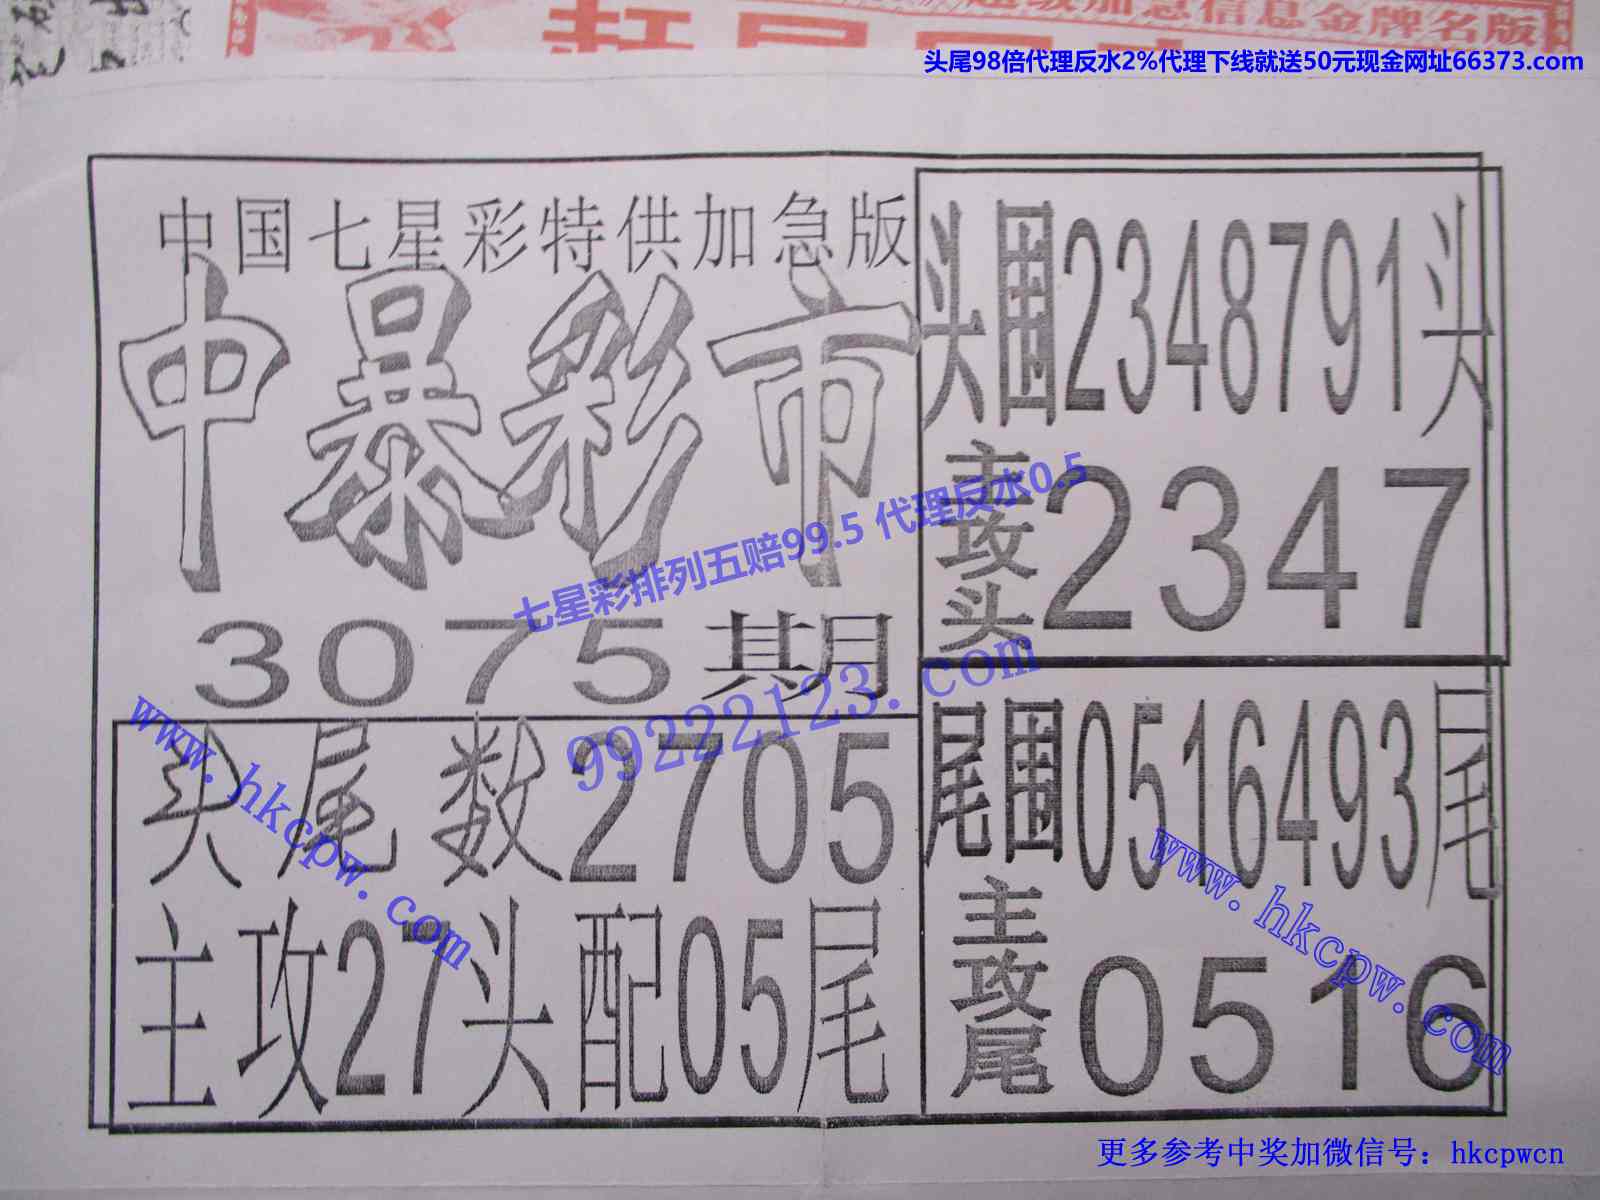 超级加急信息金牌名版
头尾98倍代理反水2%代理下线就送50元现金网址66373.com
中国七星彩特供加急版
中暴彩市
3075期
头尾数2705
主攻27头配05尾
头围2348791头
主攻头2347
尾围0516493尾
主攻尾0516
七星彩排列五赔99.5 代理反水0.5
99222123.com
www.hkcpw.com
www.hkcpw.com
更多参考中奖加微信号：hkcpwcn